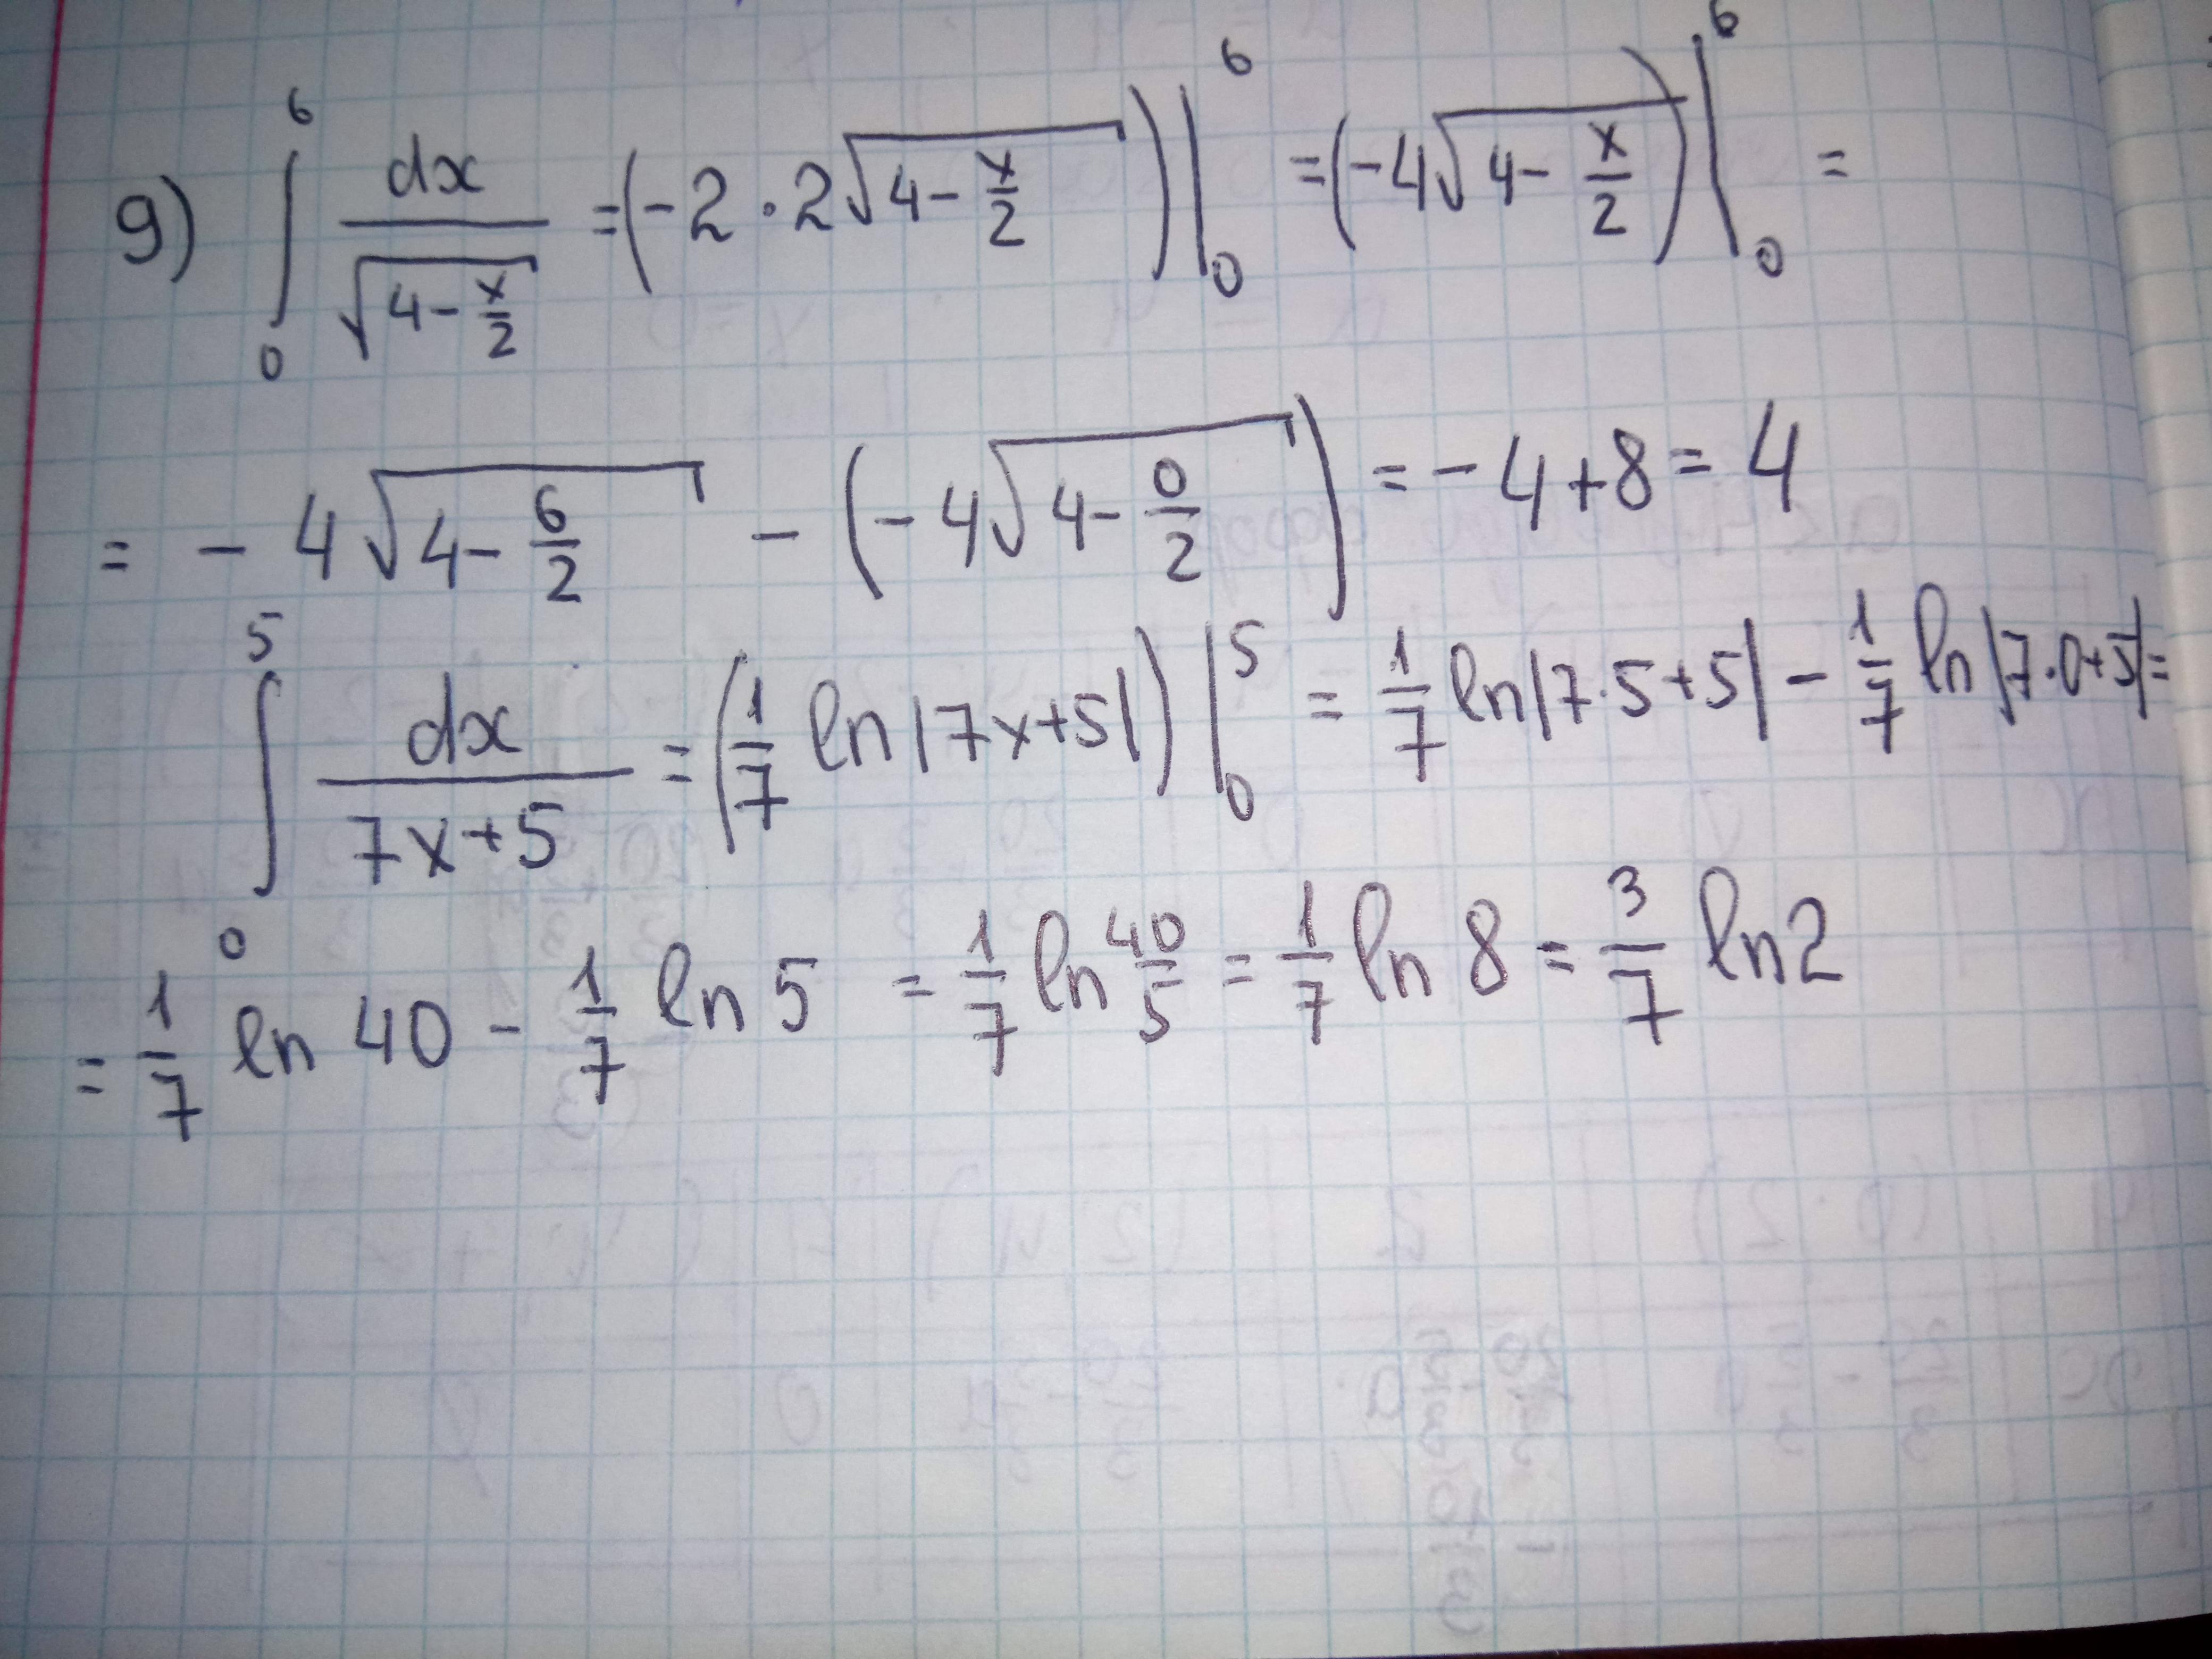 9) ∫₀⁶ dx / √(4 - x/2) = (-2 · 2√(4 - x/2)) |₀⁶ = (-4√(4 - x/2)) |₀⁶ =
= -4√(4 - 6/2) - (-4√(4 - 0/2)) = -4 + 8 = 4
∫₀⁵ dx / (7x+5) = (1/7 ln|7x+5|) |₀⁵ = 1/7 ln|7·5+5| - 1/7 ln|7·0+5| =
= 1/7 ln 40 - 1/7 ln 5 = 1/7 ln 40/5 = 1/7 ln 8 = 3/7 ln 2